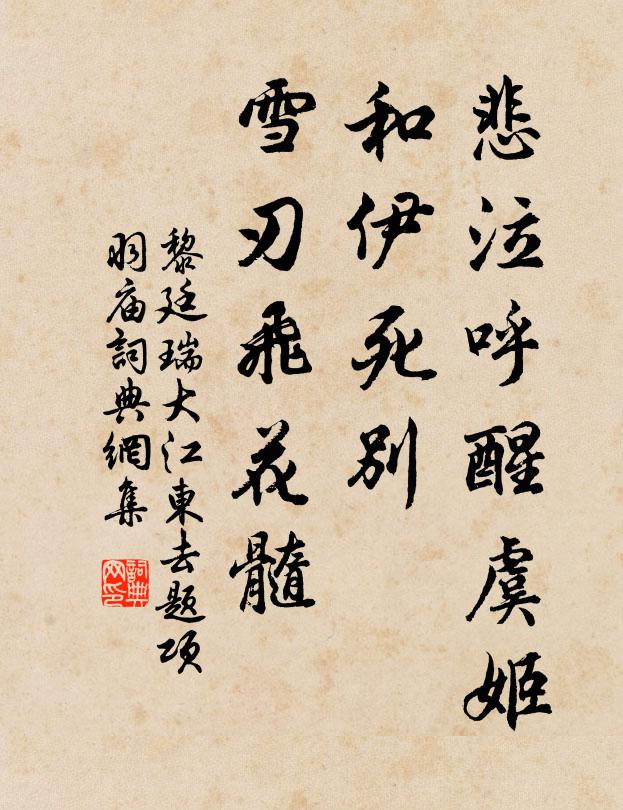 悲泣呼醒虞姬
和伊死別
雪刃飛花髓
黎廷瑞大江東去題項
羽庙詞典網集
詞典网印